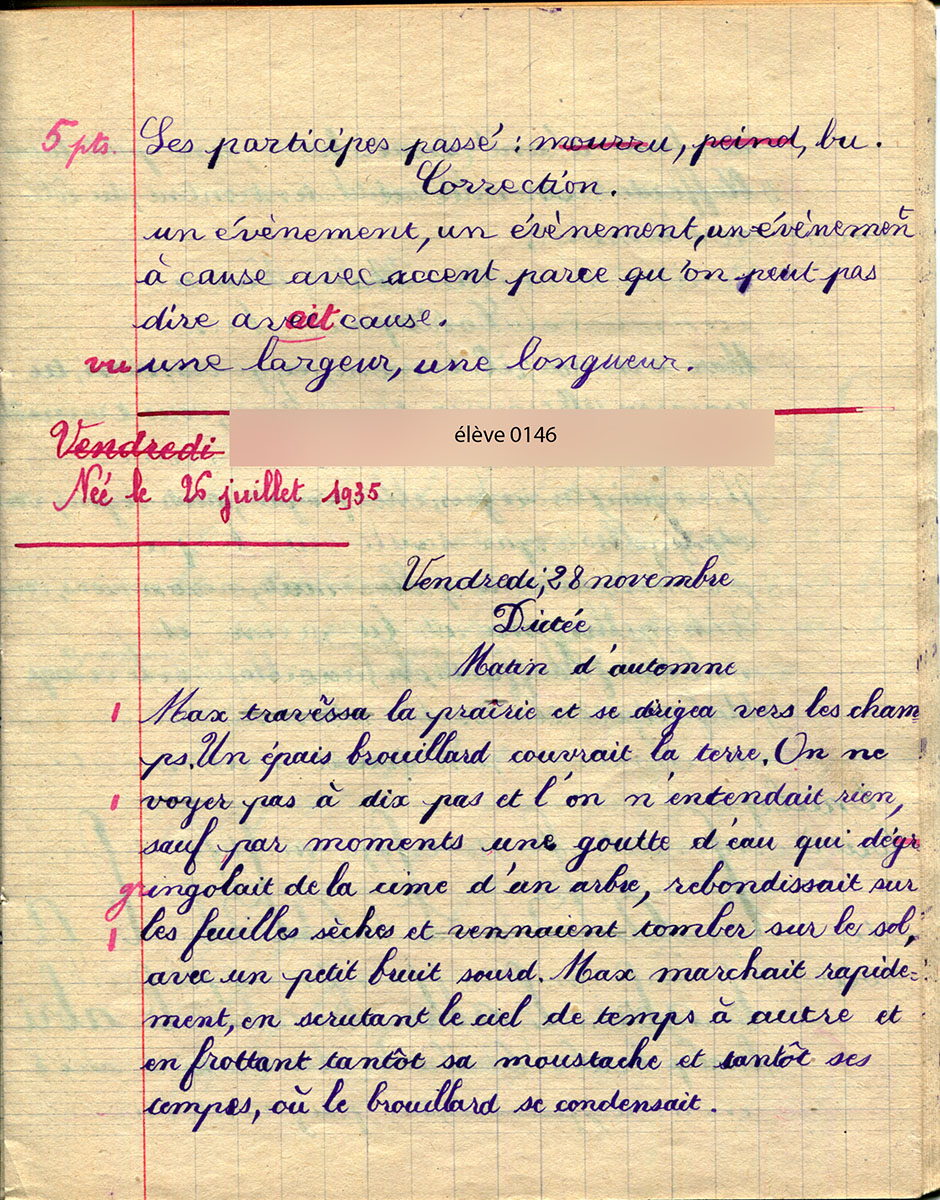 5 pts. Les participes passé : mourru, peind, bu.
Correction.
un évènement, un évènement, un évènement
à cause avec accent parce qu'on peut pas
dire avait cause.
vu une largeur, une longueur.
Vendredi
élève 0146
Née le 26 juillet 1935
Vendredi, 28 novembre
Dictée
Matin d'automne
1 Max travèssa la prairie et se dirigea vers les cham
ps. Un épais brouillard couvrait la terre. On ne
1 voyer pas à dix pas et l'on n'entendait rien,
sauf par moments une goutte d'eau qui dégr
gringolait de la cime d'un arbre, rebondissait sur
1 les feuilles sèches et vennaient tomber sur le sol,
avec un petit bruit sourd. Max marchait rapide=
ment, en scrutant le ciel de temps à autre et
en frottant tantôt sa moustache et tantôt ses
tempes, où le brouillard se condensait.